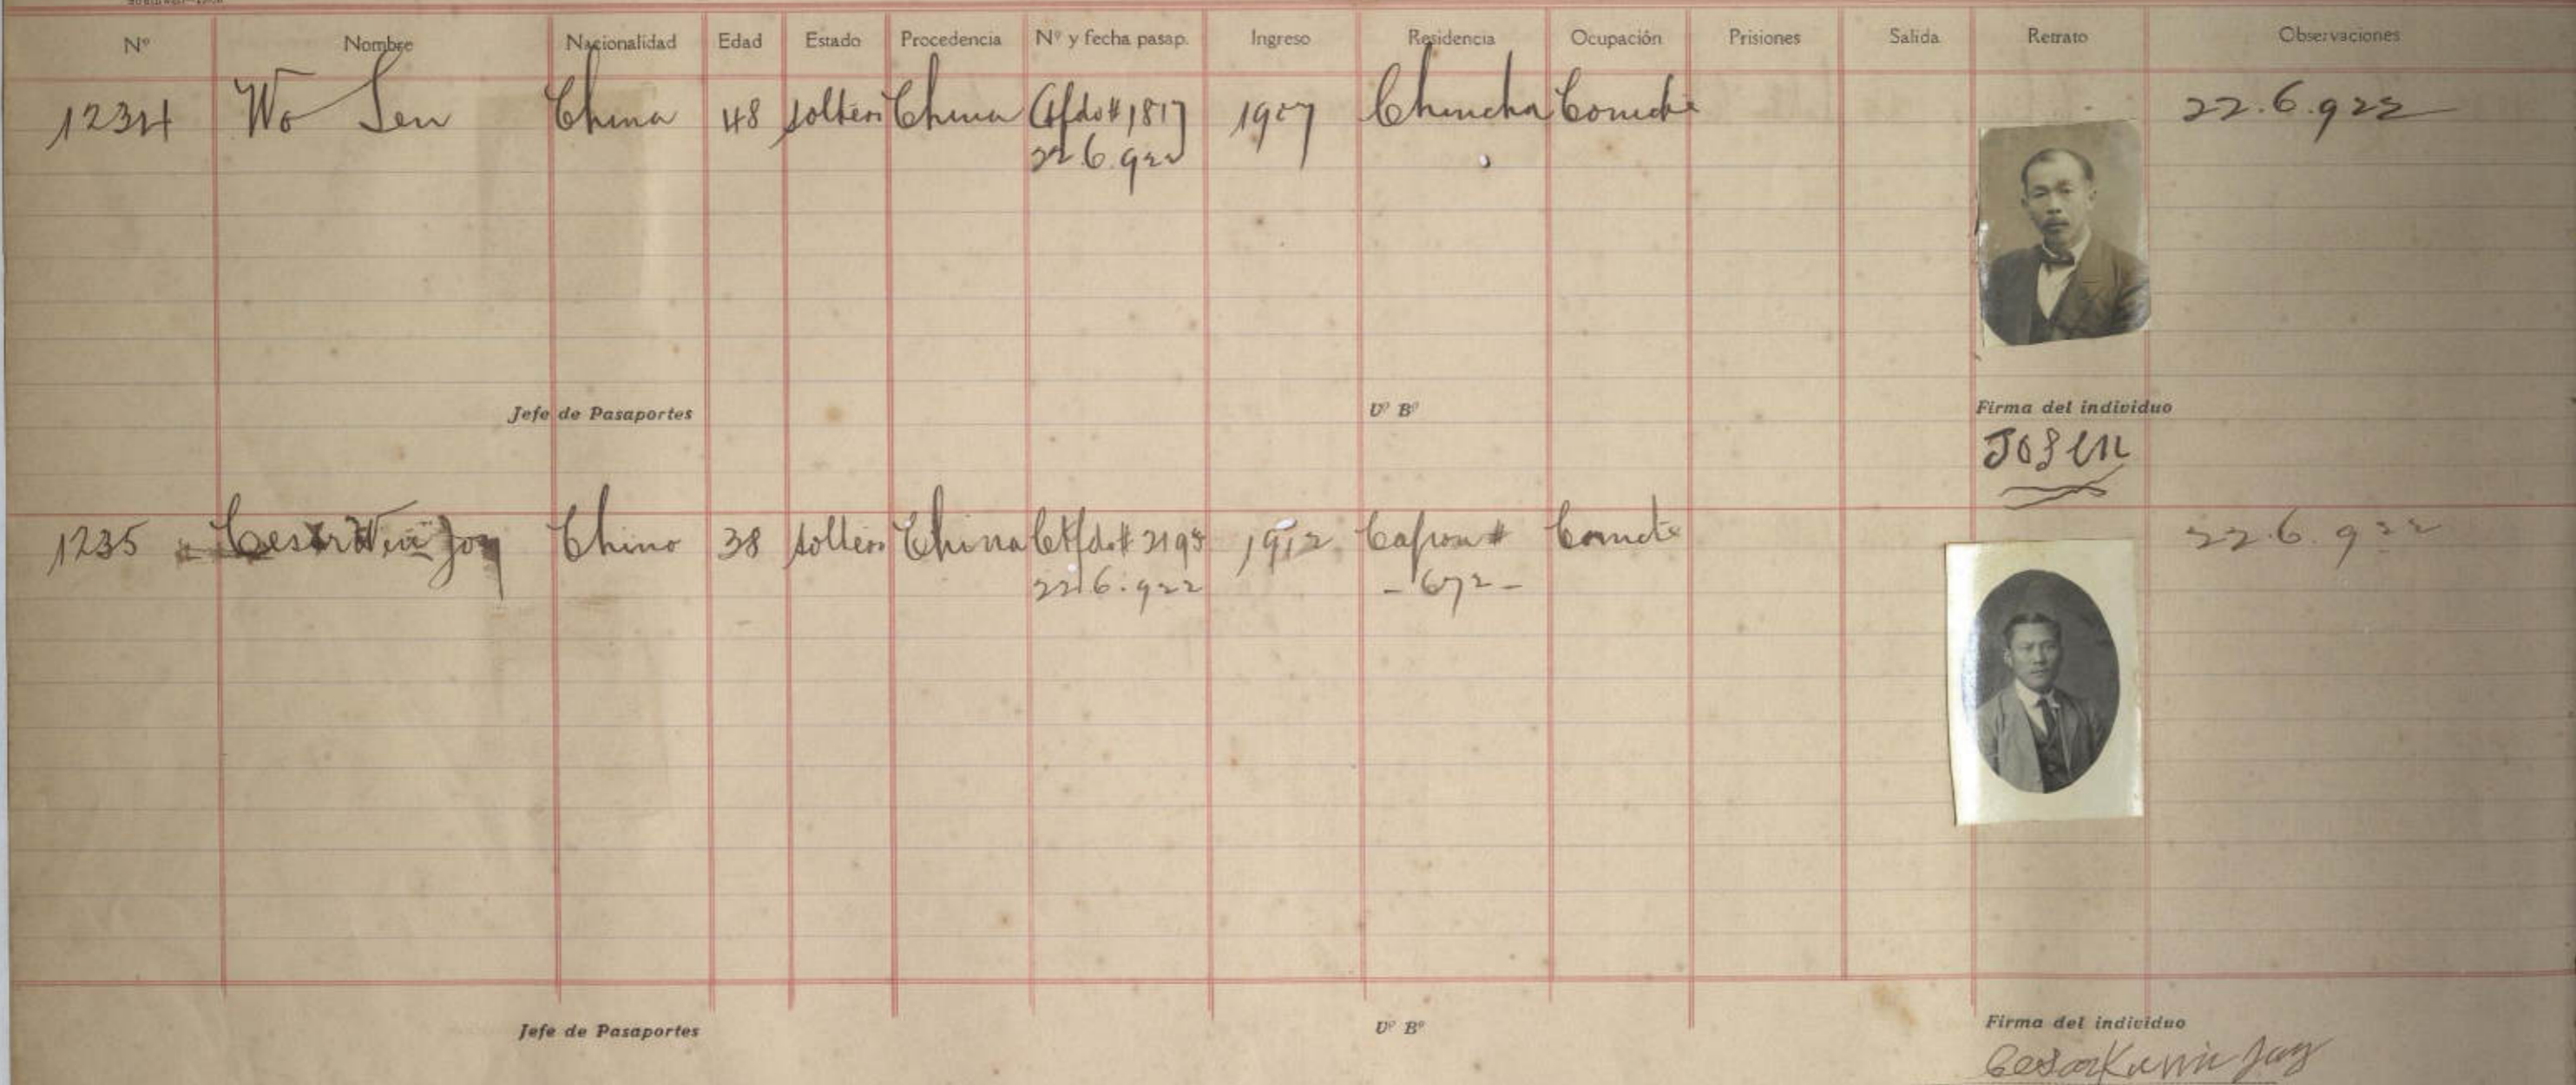 Nº Nombre Nacionalidad Edad Estado Procedencia Nº y fecha pasap. Ingreso Residencia Ocupación Prisiones Salida Retrato Observaciones
1234 Wo Sen China 48 soltero China Ctfdo # 1817 1907 Chincha Comcte 22.6.922
22.6.922
Jefe de Pasaportes Vº Bº Firma del individuo
JOSEN
1235 Cesar Joy Chino 38 soltero China Ctfdo # 2195 1912 Capon # Comcte 22.6.922
22.6.922 - 672 -
Jefe de Pasaportes Vº Bº Firma del individuo
Cesar Joy